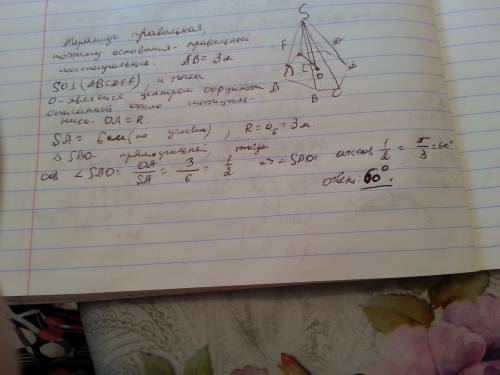 Пирамида правильная,
поэтому основания - правильный
шестиугольник. AB = 3м
SO⊥(ABCDEF), и точка
O - является центром окружности
описанной около шестиуголь-
нико. OA = R.
SA = 6см (по условию), R = a₆ = 3м.
△ SAO - прямоугольный, тогда
cos ∠SAO = OA/SA = 3/6 = 1/2 => ∠SAO = arccos 1/2 = π/3 = 60°
Ответ: 60°.
S
F
E
D
A
O
B
C